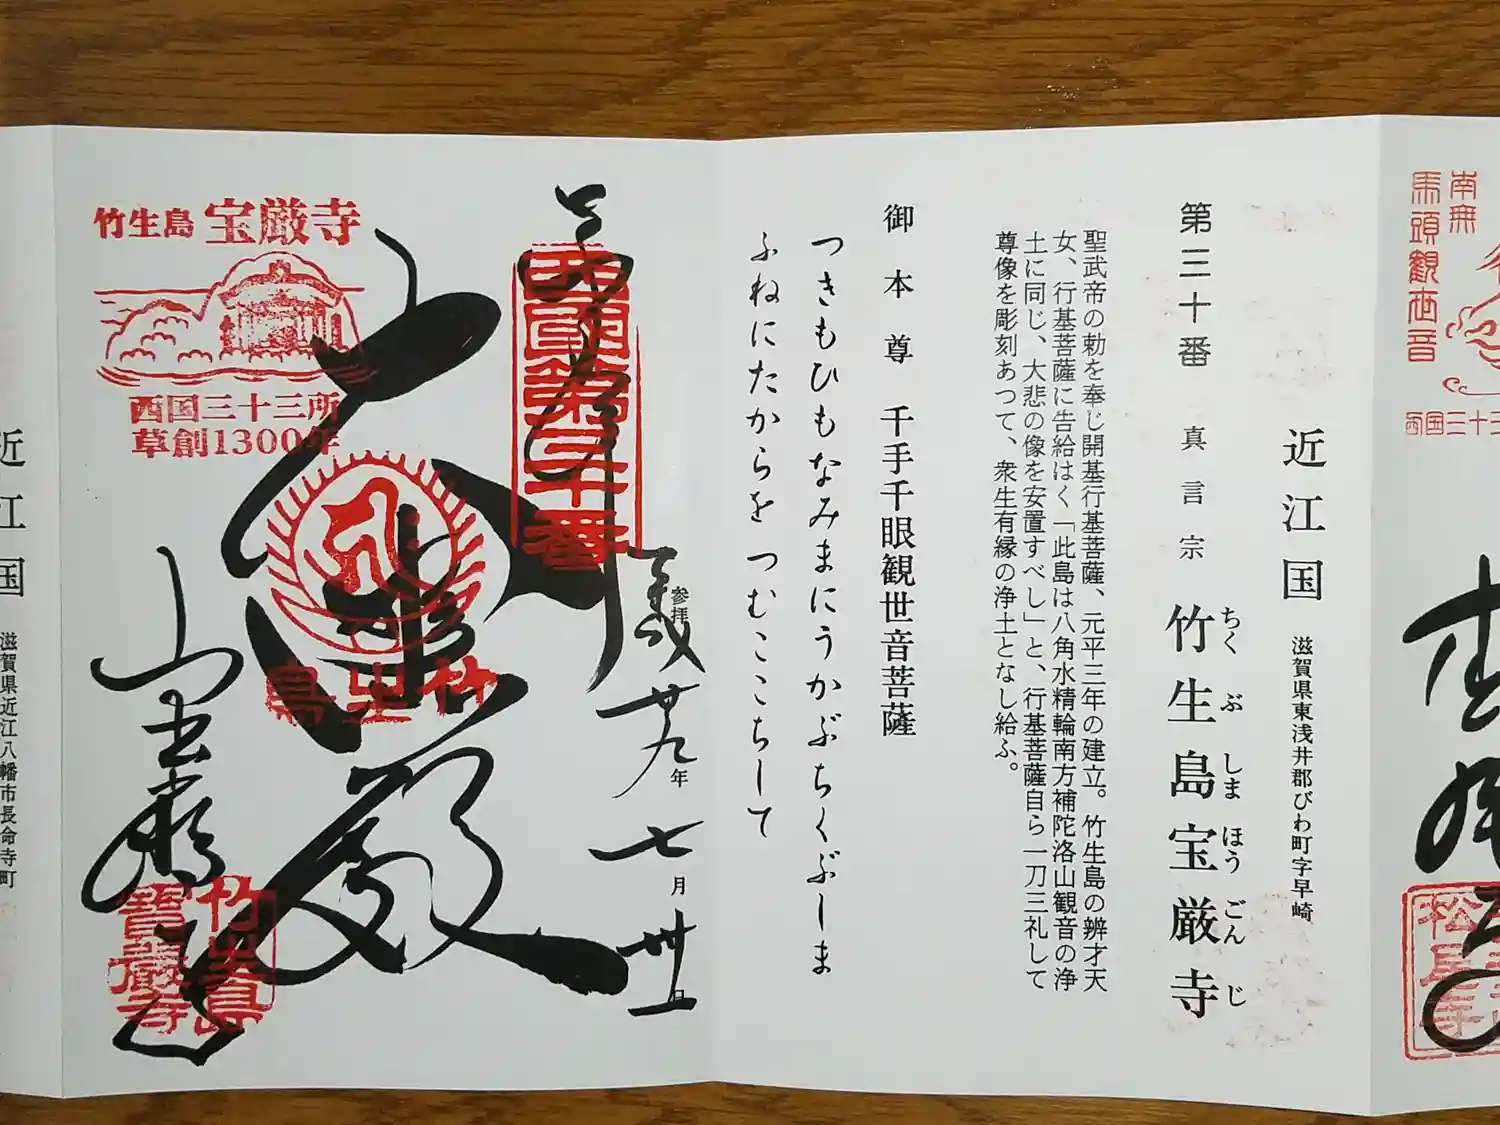 南無
馬頭観世音
西国三十三
松尾寺
近江国
滋賀県東浅井郡びわ町字早崎
第三十番 真言宗 竹生島宝厳寺
ちく ぶ しま ほう ごん じ
聖武帝の勅を奉じ開基行基菩薩、元平三年の建立。竹生島の辨才天
女、行基菩薩に告給はく「此島は八角水精輪南方補陀洛山観音の浄
土に同じ、大悲の像を安置すべし」と、行基菩薩自ら一刀三礼して
尊像を彫刻あつて、衆生有縁の浄土となし給ふ。
御本尊 千手千眼観世音菩薩
つきもひもなみまにうかぶちくぶしま
ふねにたからをつむここちして
奉拝
西国第三十番
参拝
平成廿九年七月卅一日
竹生島 宝厳寺
西国三十三所
草創1300年
大悲殿
竹生島
宝厳寺
竹生島
寶嚴寺
近江国
滋賀県近江八幡市長命寺町